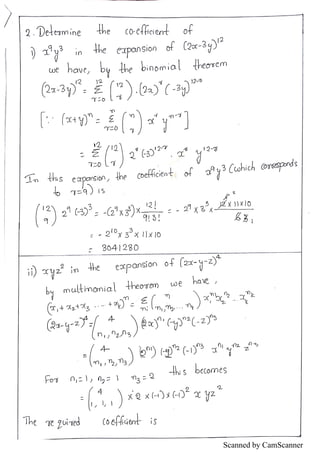 2. Determine the co-efficient of
i) x⁹y³ in the expansion of (2x-3y)¹²
we have, by the binomial theorem
(2x-3y)¹² = Σ_{r=0}^{12} (12 r) · (2x)^r (-3y)^{12-r}
[∵ (x+y)^n = Σ_{r=0}^{n} (n r) x^r y^{n-r}]
= Σ_{r=0}^{12} (12 r) 2^r (-3)^{12-r} · x^r y^{12-r}
In this expansion, the coefficient of x⁹y³ (which corresponds
to r=9) is
(12 9) 2⁹ (-3)³ = -(2⁹ × 3³) × 12!/9!3! = -2⁹ × 3³ ×
= -2¹⁰ × 3³ × 11 × 10
= 3041280
ii) xyz² in the expansion of (2x-y-z)⁴
by multinomial theorem we have,
(2x-y-z)⁴ = (4 n₁, n₂, n₃) (2x)^{n₁} (-y)^{n₂} (-z)^{n₃}
= (4 n₁, n₂, n₃) (-1)^{n₃} x^{n₁} y^{n₂} z^{n₃}
For n₁=1, n₂=1 n₃=2 this becomes
= (4 1, 1, 1) × 2 × (-1) × (-1)² x yz²
The required coefficient is
Scanned by CamScanner